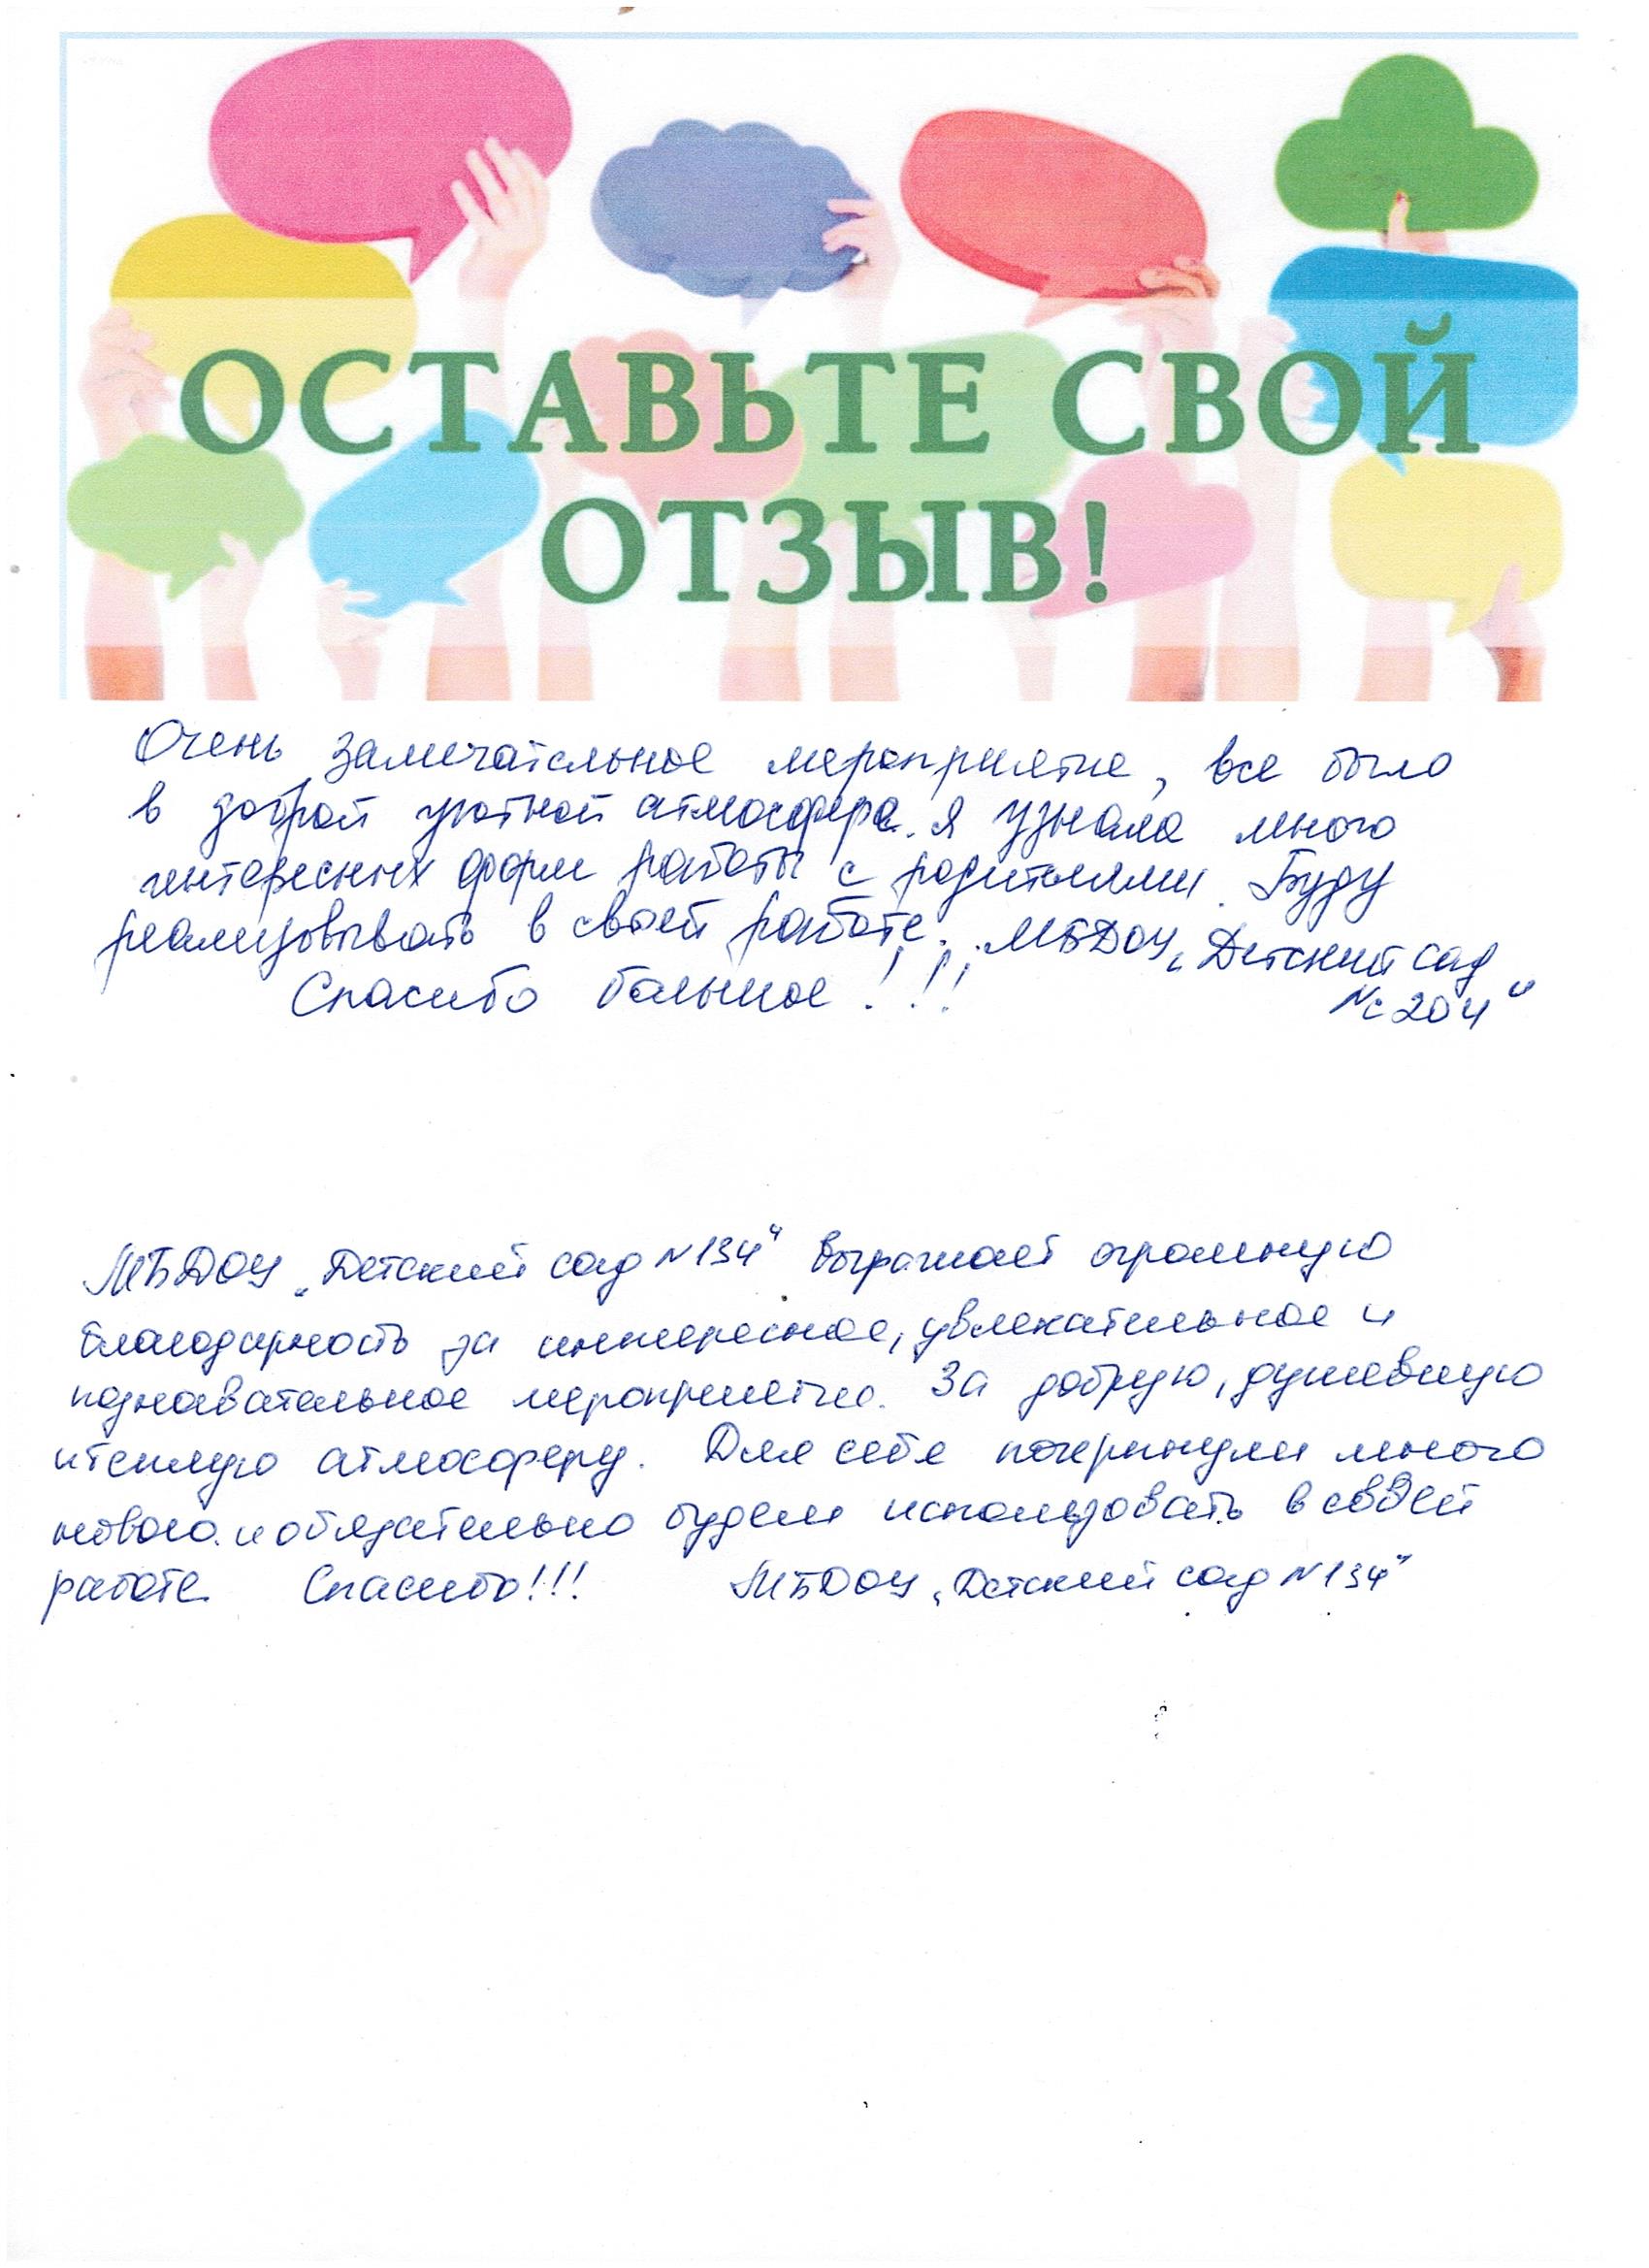 ОСТАВЬТЕ СВОЙ
ОТЗЫВ!
Очень замечательное мероприятие, все было
в доброй уютной атмосфере. Я узнала много
интересных форм работы с родителями. Буду
реализовывать в своей работе. МБДОУ „Детский сад
Спасибо большое!!! №204"
МБДОУ „Детский сад №134" выражает огромную
благодарность за интересное, увлекательное и
познавательное мероприятие. За добрую, душевную
и теплую атмосферу. Для себя почерпнули много
нового и обязательно будем использовать в своей
работе. Спасибо!!! МБДОУ „Детский сад №134"